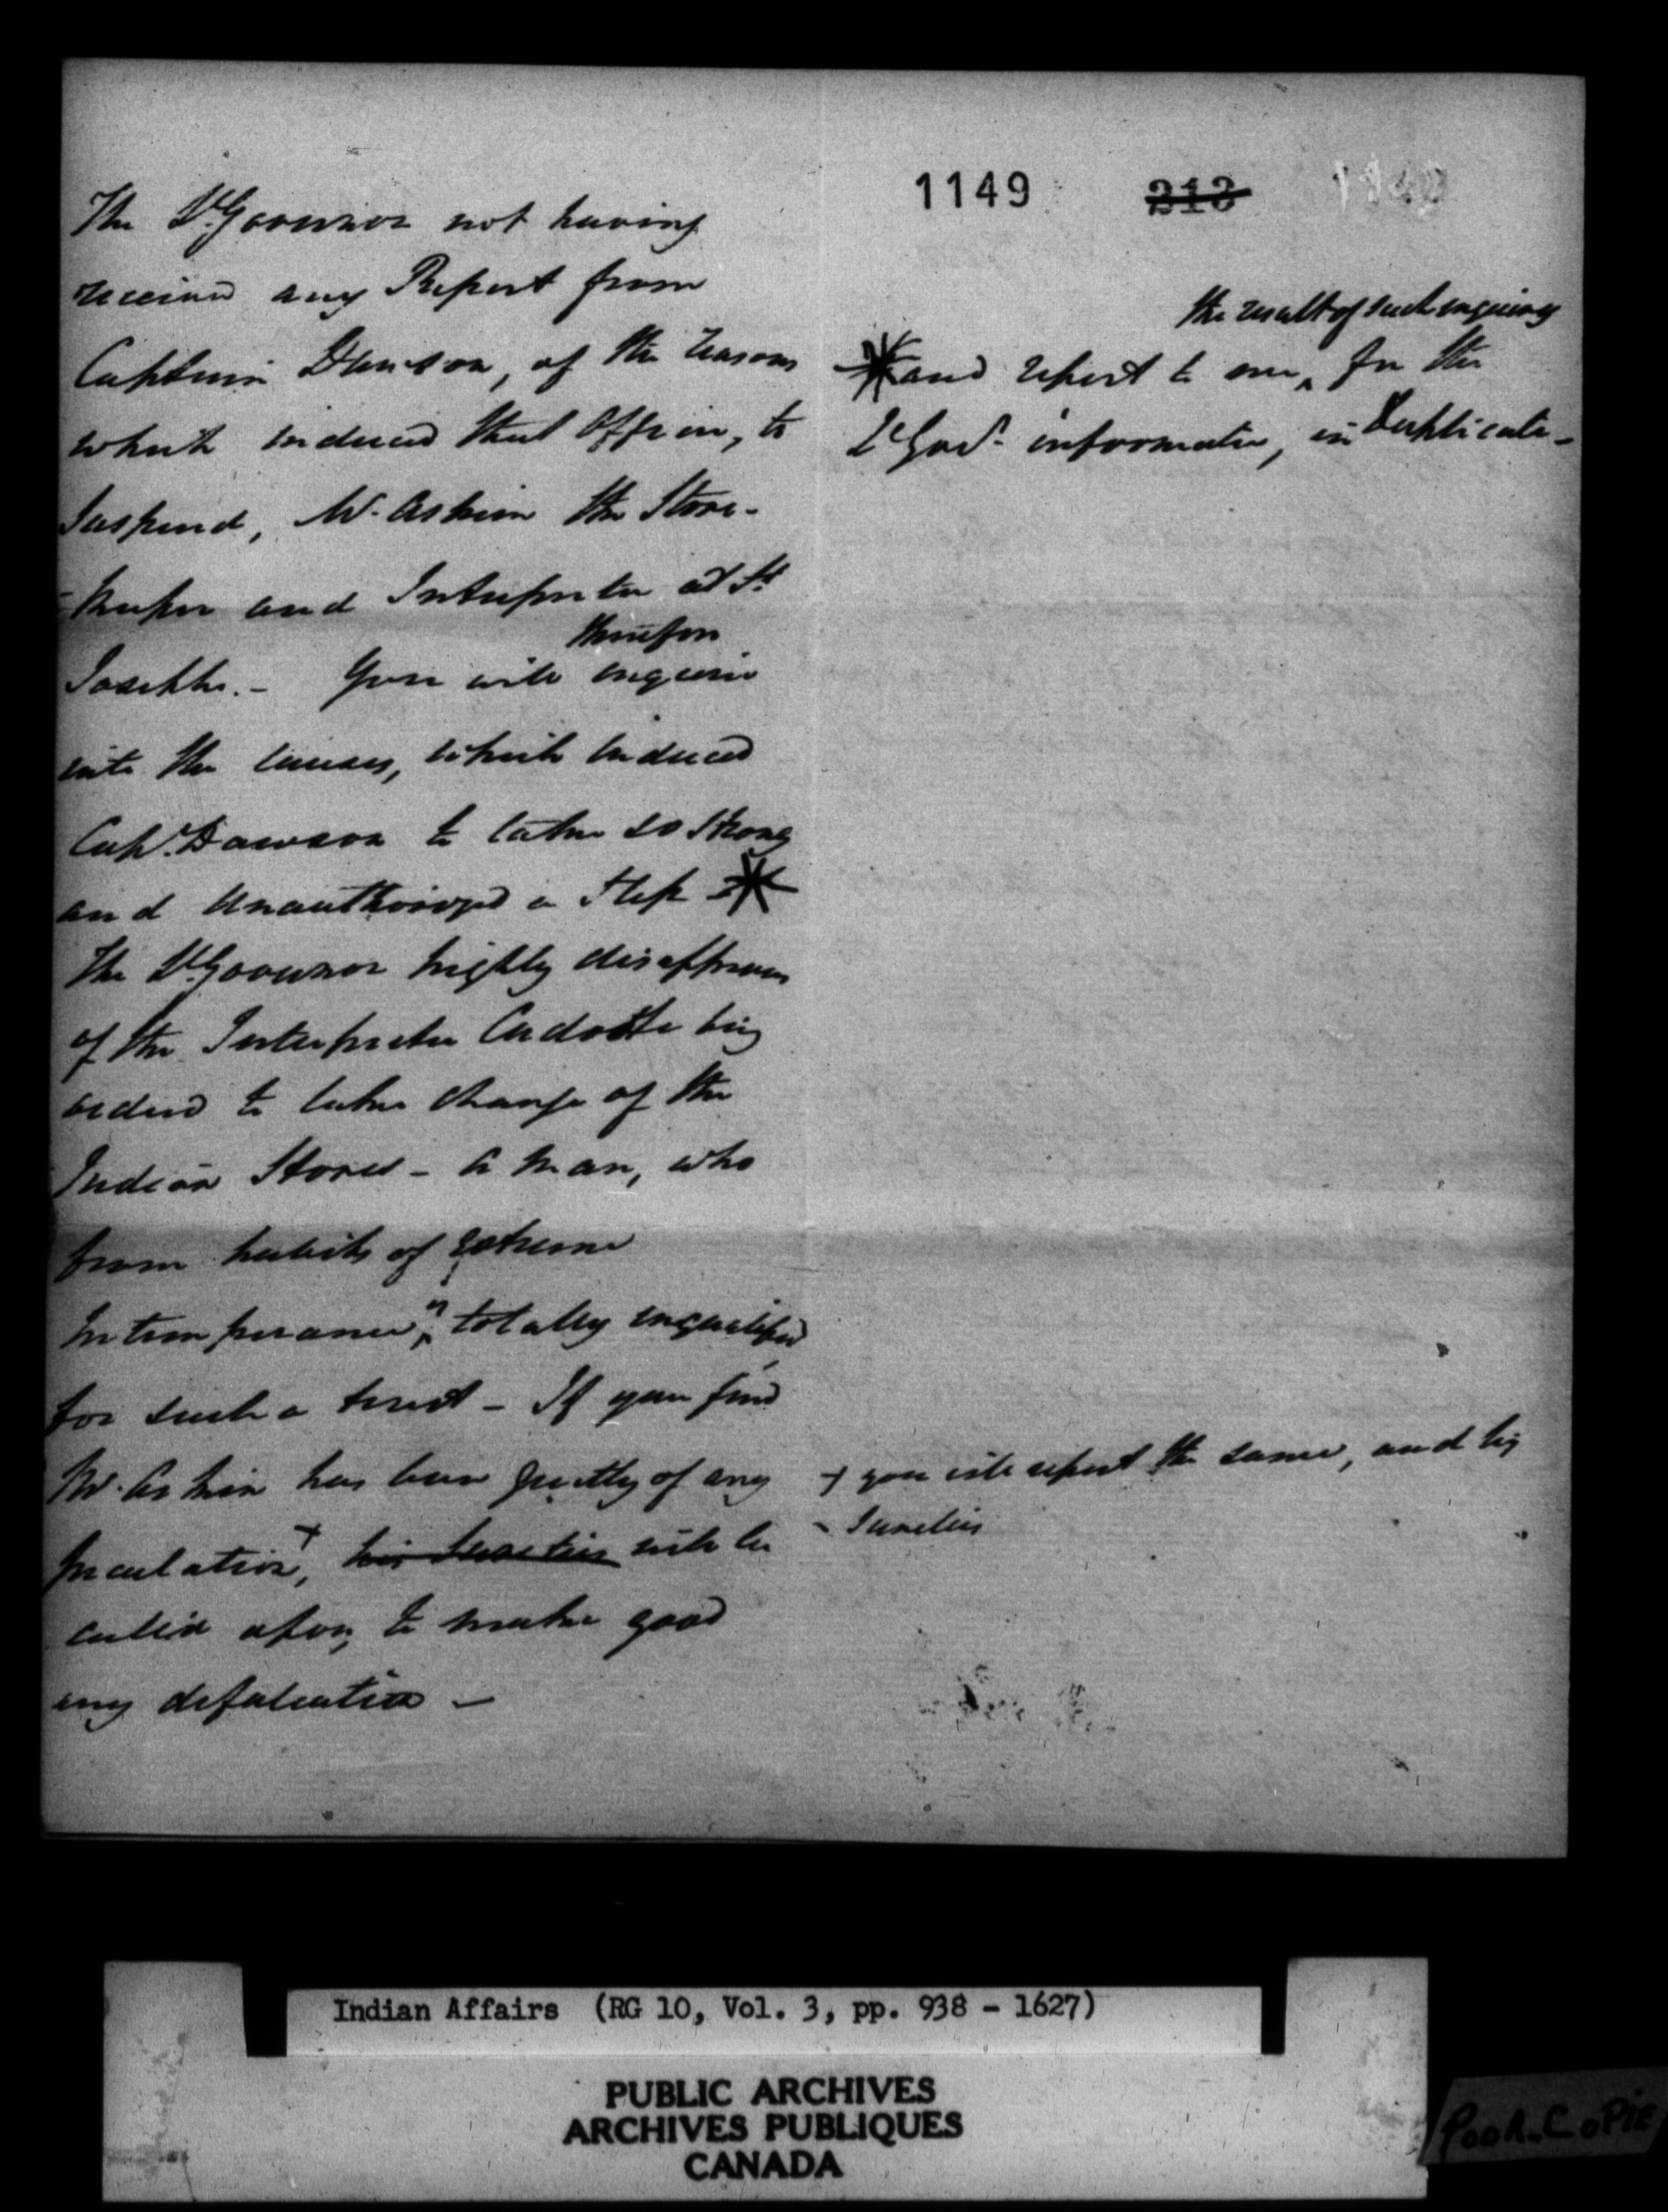 1149 213
The Lt Governor not having
received any Report from
Captain Dawson, of the reasons
which induced that Officer, to
Suspend, Mr. Askin the Store-
-keeper and Interpreter at St
Joseph's.- You will therefore enquire
into the causes, which induced
Capt. Dawson to take so strong
and Unauthorized a Step *
The Lt Governor highly disapproves
of the Interpreter Cadotte being
ordered to take charge of the
Indian Stores - a Man, who
from habits of extreme
Intemperance, is totally unqualified
for such a trust - If you find
Mr. Askin has been guilty of any
peculation +, his Sureties will be
called upon, to make good
any defalcation -
the result of such enquiry
* and report to me, for the
Lt Govr. information, in Duplicate -
+ you will report the same, and his
- Sureties
Indian Affairs (RG 10, Vol. 3, pp. 938 - 1627)
PUBLIC ARCHIVES
ARCHIVES PUBLIQUES
CANADA
POOR COPIE